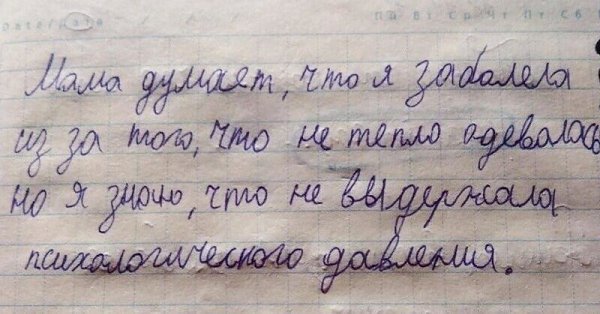 Date/Дата Пн Вт Ср Чт Пт Сб
Мама думает, что я заболела
из за того, что не тепло одевалась
но я знаю, что не выдержала
психологического давления.